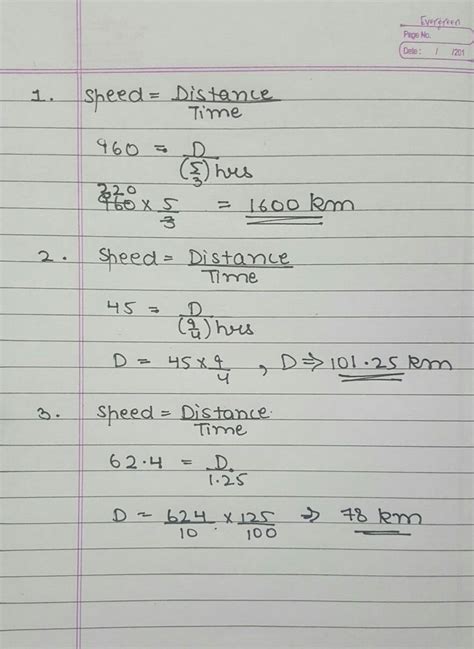 Evergreen
Page No.
Date : / /201
1. Speed = Distance/Time
960 = D/(5/3) hrs
320
960 × 5/3 = 1600 km
2. Speed = Distance/Time
45 = D/(9/4) hrs
D = 45 × 9/4 , D ⇒ 101.25 km
3. Speed = Distance/Time
62.4 = D/1.25
D = 624/10 × 125/100 ⇒ 78 km